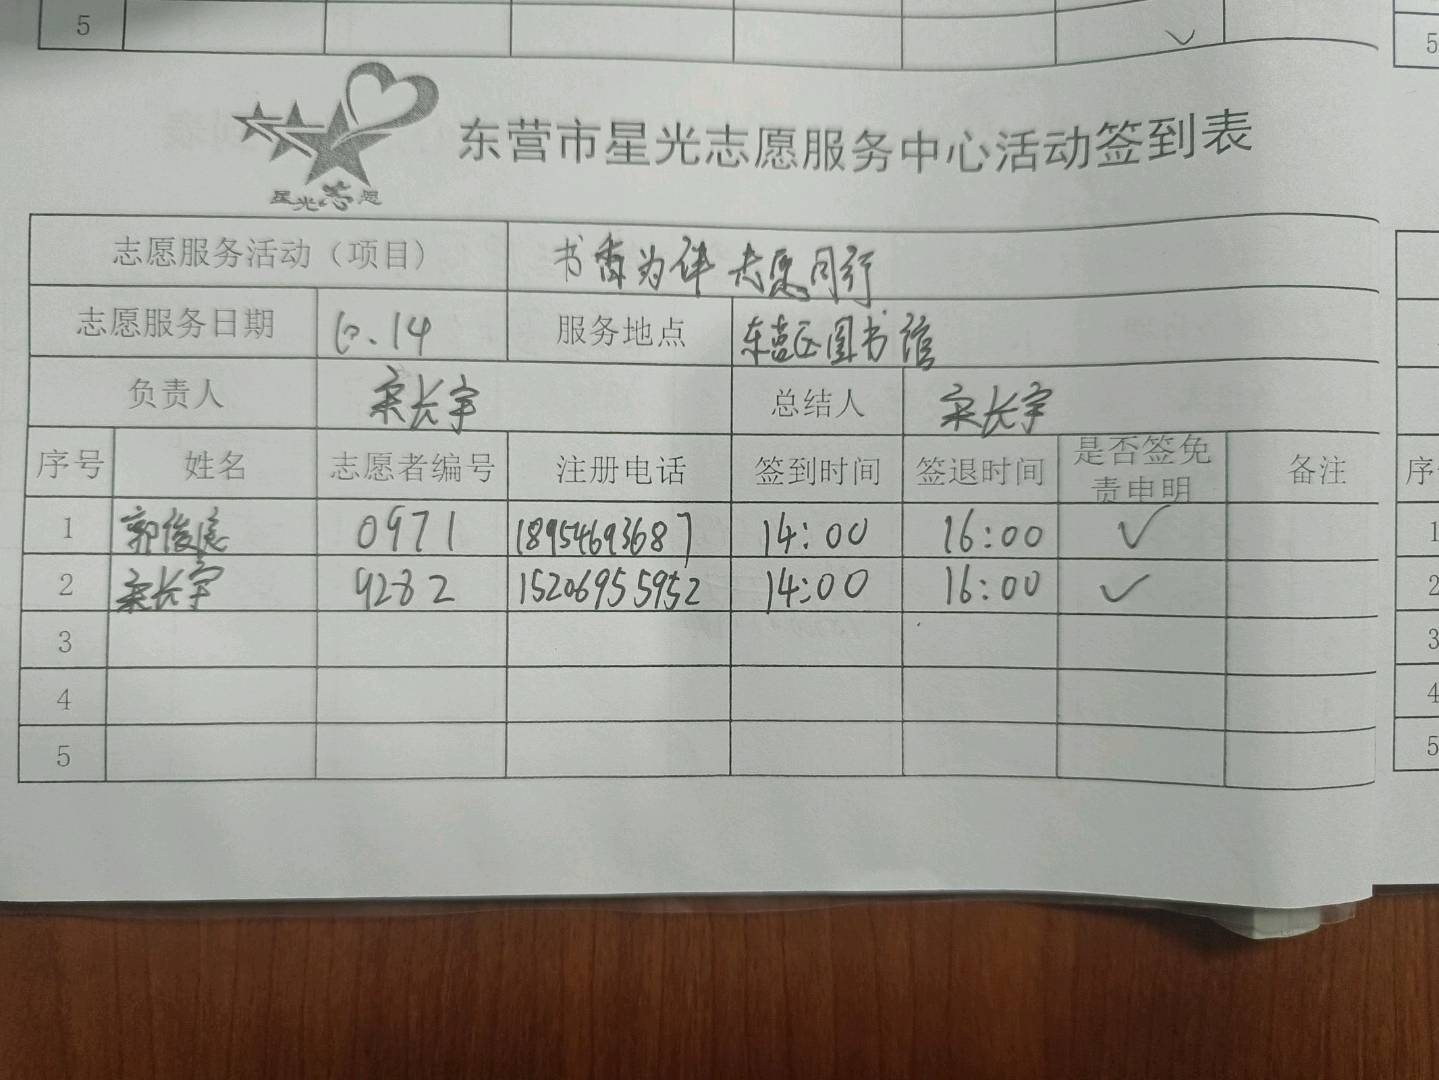 5
东营市星光志愿服务中心活动签到表
星光志愿
志愿服务活动（项目） 书香为伴 志愿同行
志愿服务日期 6.14 服务地点 东营区图书馆
负责人 宋长宇 总结人 宋长宇
序号 姓名 志愿者编号 注册电话 签到时间 签退时间 是否签免责申明 备注
1 郭俊 0971 18954693687 14:00 16:00 ✓
2 宋长宇 9282 15206955952 14:00 16:00 ✓
3
4
5
5
序
1
2
3
4
5